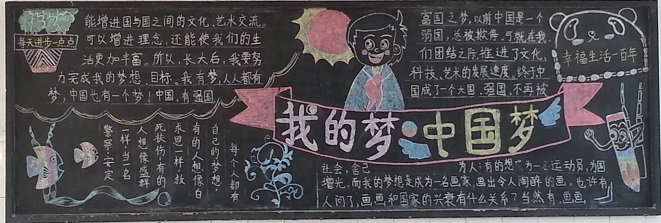 每天进步一点点
能增进国与国之间的文化、艺术交流。
可以增进理念，还能使我们的生
活更加丰富。所以，长大后，我要努
力完成我的梦想、目标。我有梦，人人都有
梦，中国也有一个梦！中国，有强国
富国之梦，以前中国是一个
弱国，总被欺辱，可就在我
们团结之际，推进了文化、
科技、艺术的发展速度。终于，中
国成了一个大国，强国，不再被
幸福生活一百年
我的梦 中国梦
每个人都有
自己的梦想，
有的人想像白
永远一样，救
死扶伤，有的
人想像
一样，当一名
警察，安定
社会，舍己
为人；有的想
运动员，为国
增光。而我的梦想是成为一名画家，画出令人陶醉的画。也许有
人问了，画画和国家的兴衰有什么关系？当然有，画画